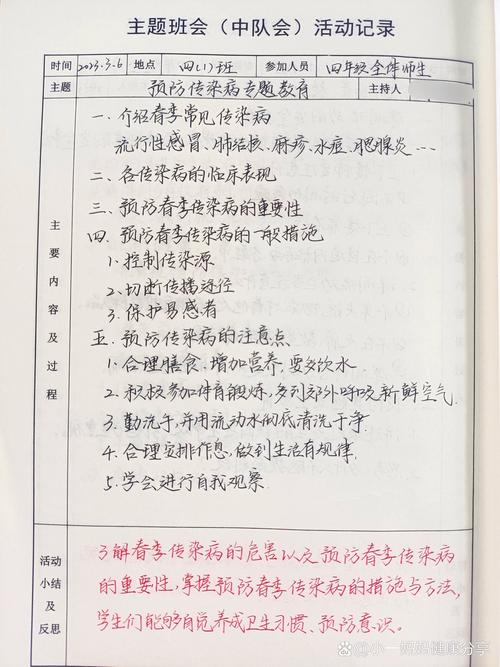 主题班会（中队会）活动记录
时间 2023.3.6 地点 四(1)班 参加人员 四年级全体师生
主题 预防传染病专题教育 主持人
主要内容及过程
一、介绍春季常见传染病
流行性感冒、肺结核、麻疹、水痘、腮腺炎…
二、各传染病的临床表现
三、预防春季传染病的重要性
四、预防春季传染病的一般措施
1.控制传染源
2.切断传播途径
3.保护易感者
五、预防传染病的注意点
1.合理膳食,增加营养,要多饮水
2.积极参加体育锻炼,多到郊外呼吸新鲜空气.
3.勤洗手,并用流动水彻底清洗干净
4.合理安排作息,做到生活有规律.
5.学会进行自我观察
活动小结及反思
了解春季传染病的危害以及预防春季传染病
的重要性,掌握预防春季传染病的措施与方法,
学生们能够自觉养成卫生习惯、预防意识。
小一妈妈健康分享